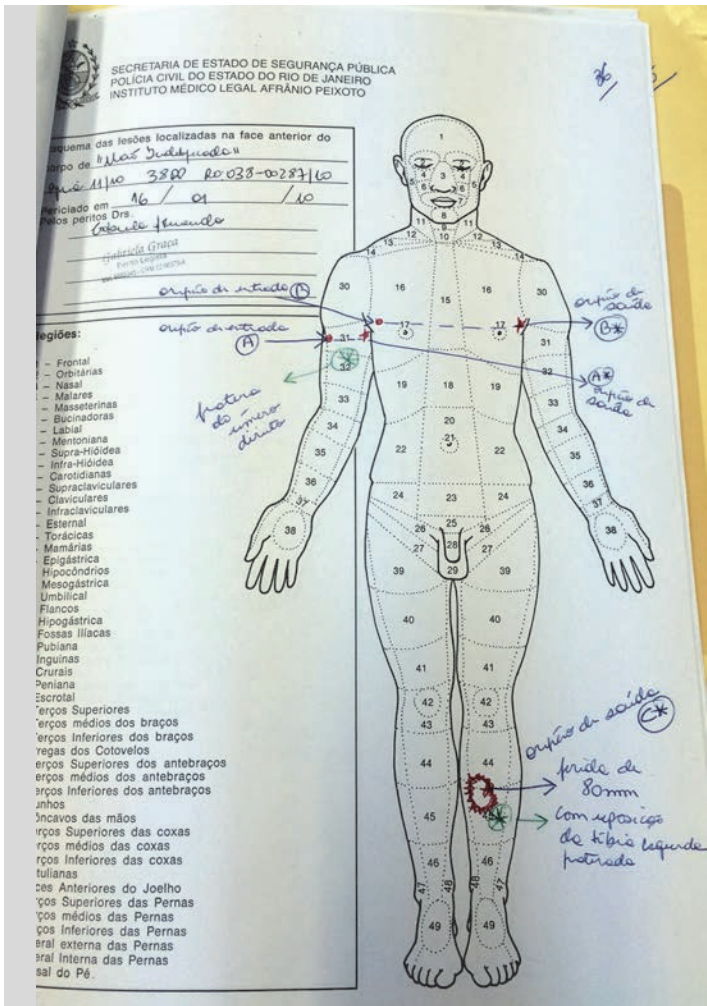 SECRETARIA DE ESTADO DE SEGURANÇA PÚBLICA
POLÍCIA CIVIL DO ESTADO DO RIO DE JANEIRO
INSTITUTO MÉDICO LEGAL AFRÂNIO PEIXOTO
36
quema das lesões localizadas na face anterior do
orpo de "Não Identificado"
11/10 38DP RO 038-00287/10
Periciado em 16 / 01 /10
Pelos peritos Drs.
Gabriela Graça
Perito Legista
orifício de entrada B
orifício de entrada
A
orifício de saída
B*
A*
orifício de saída
fratura do úmero direito
egiões:
- Frontal
- Orbitárias
- Nasal
- Malares
- Masseterinas
- Bucinadoras
- Labial
- Mentoniana
- Supra-Hióidea
- Infra-Hióidea
- Carotidianas
- Supraclaviculares
- Claviculares
- Infraclaviculares
- Esternal
- Torácicas
- Mamárias
Epigástrica
Hipocôndrios
Mesogástrica
Umbilical
Flancos
Hipogástrica
Fossas Ilíacas
Pubiana
Inguinas
Crurais
Peniana
Escrotal
Terços Superiores
Terços médios dos braços
Terços Inferiores dos braços
regas dos Cotovelos
erços Superiores dos antebraços
erços médios dos antebraços
erços Inferiores dos antebraços
unhos
ôncavos das mãos
rços Superiores das coxas
rços médios das coxas
rços Inferiores das coxas
tulianas
ces Anteriores do Joelho
rços Superiores das Pernas
ços médios das Pernas
ços Inferiores das Pernas
eral externa das Pernas
eral Interna das Pernas
sal do Pé.
1
2 2
4 3 4
5 6 6 5
8
9
11 10 11
14 13 12 12 13 14
30 16 15 16 30
31 17 17 31
32 32
33 19 18 19 33
34 20 34
35 21 35
36 22 22 36
37 24 23 24 37
38 26 25 26 38
27 28 27
39 29 39
40 40
41 41
42 42
43 43
44 44
45
46 46
47 48 48 47
49 49
orifício de saída
C*
ferida de
80mm
com exposição
da tíbia esquerda
fraturada